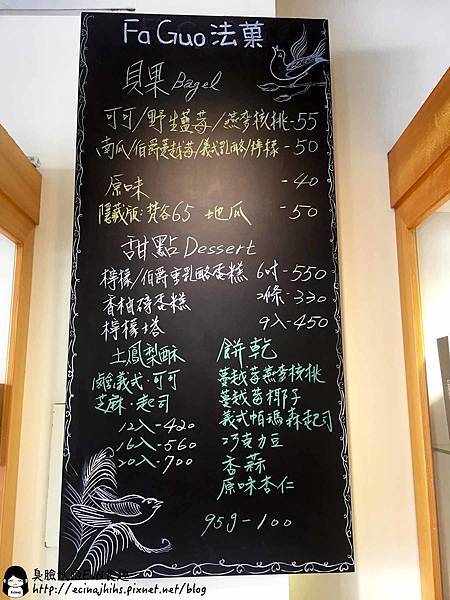 Fa Guo 法菓
貝果 Bagel
可可/野生藍莓/燕麥核桃-55
南瓜/伯爵蔓越莓/義式乳酪/檸檬-50
原味 -40
隱藏版:梵谷65 地瓜 -50
甜點 Dessert
檸檬/伯爵重乳酪蛋糕 6吋-550
香柚磅蛋糕 2條-330
檸檬塔 9入-450
土鳳梨酥
鹹義式.可可
芝麻.起司
12入-420
16入-560
20入-700
餅乾
蔓越莓燕麥核桃
蔓越莓椰子
義式帕瑪森起司
巧克力豆
香蒜
原味杏仁
95g-100
http://ecinajhihs.pixnet.net/blog